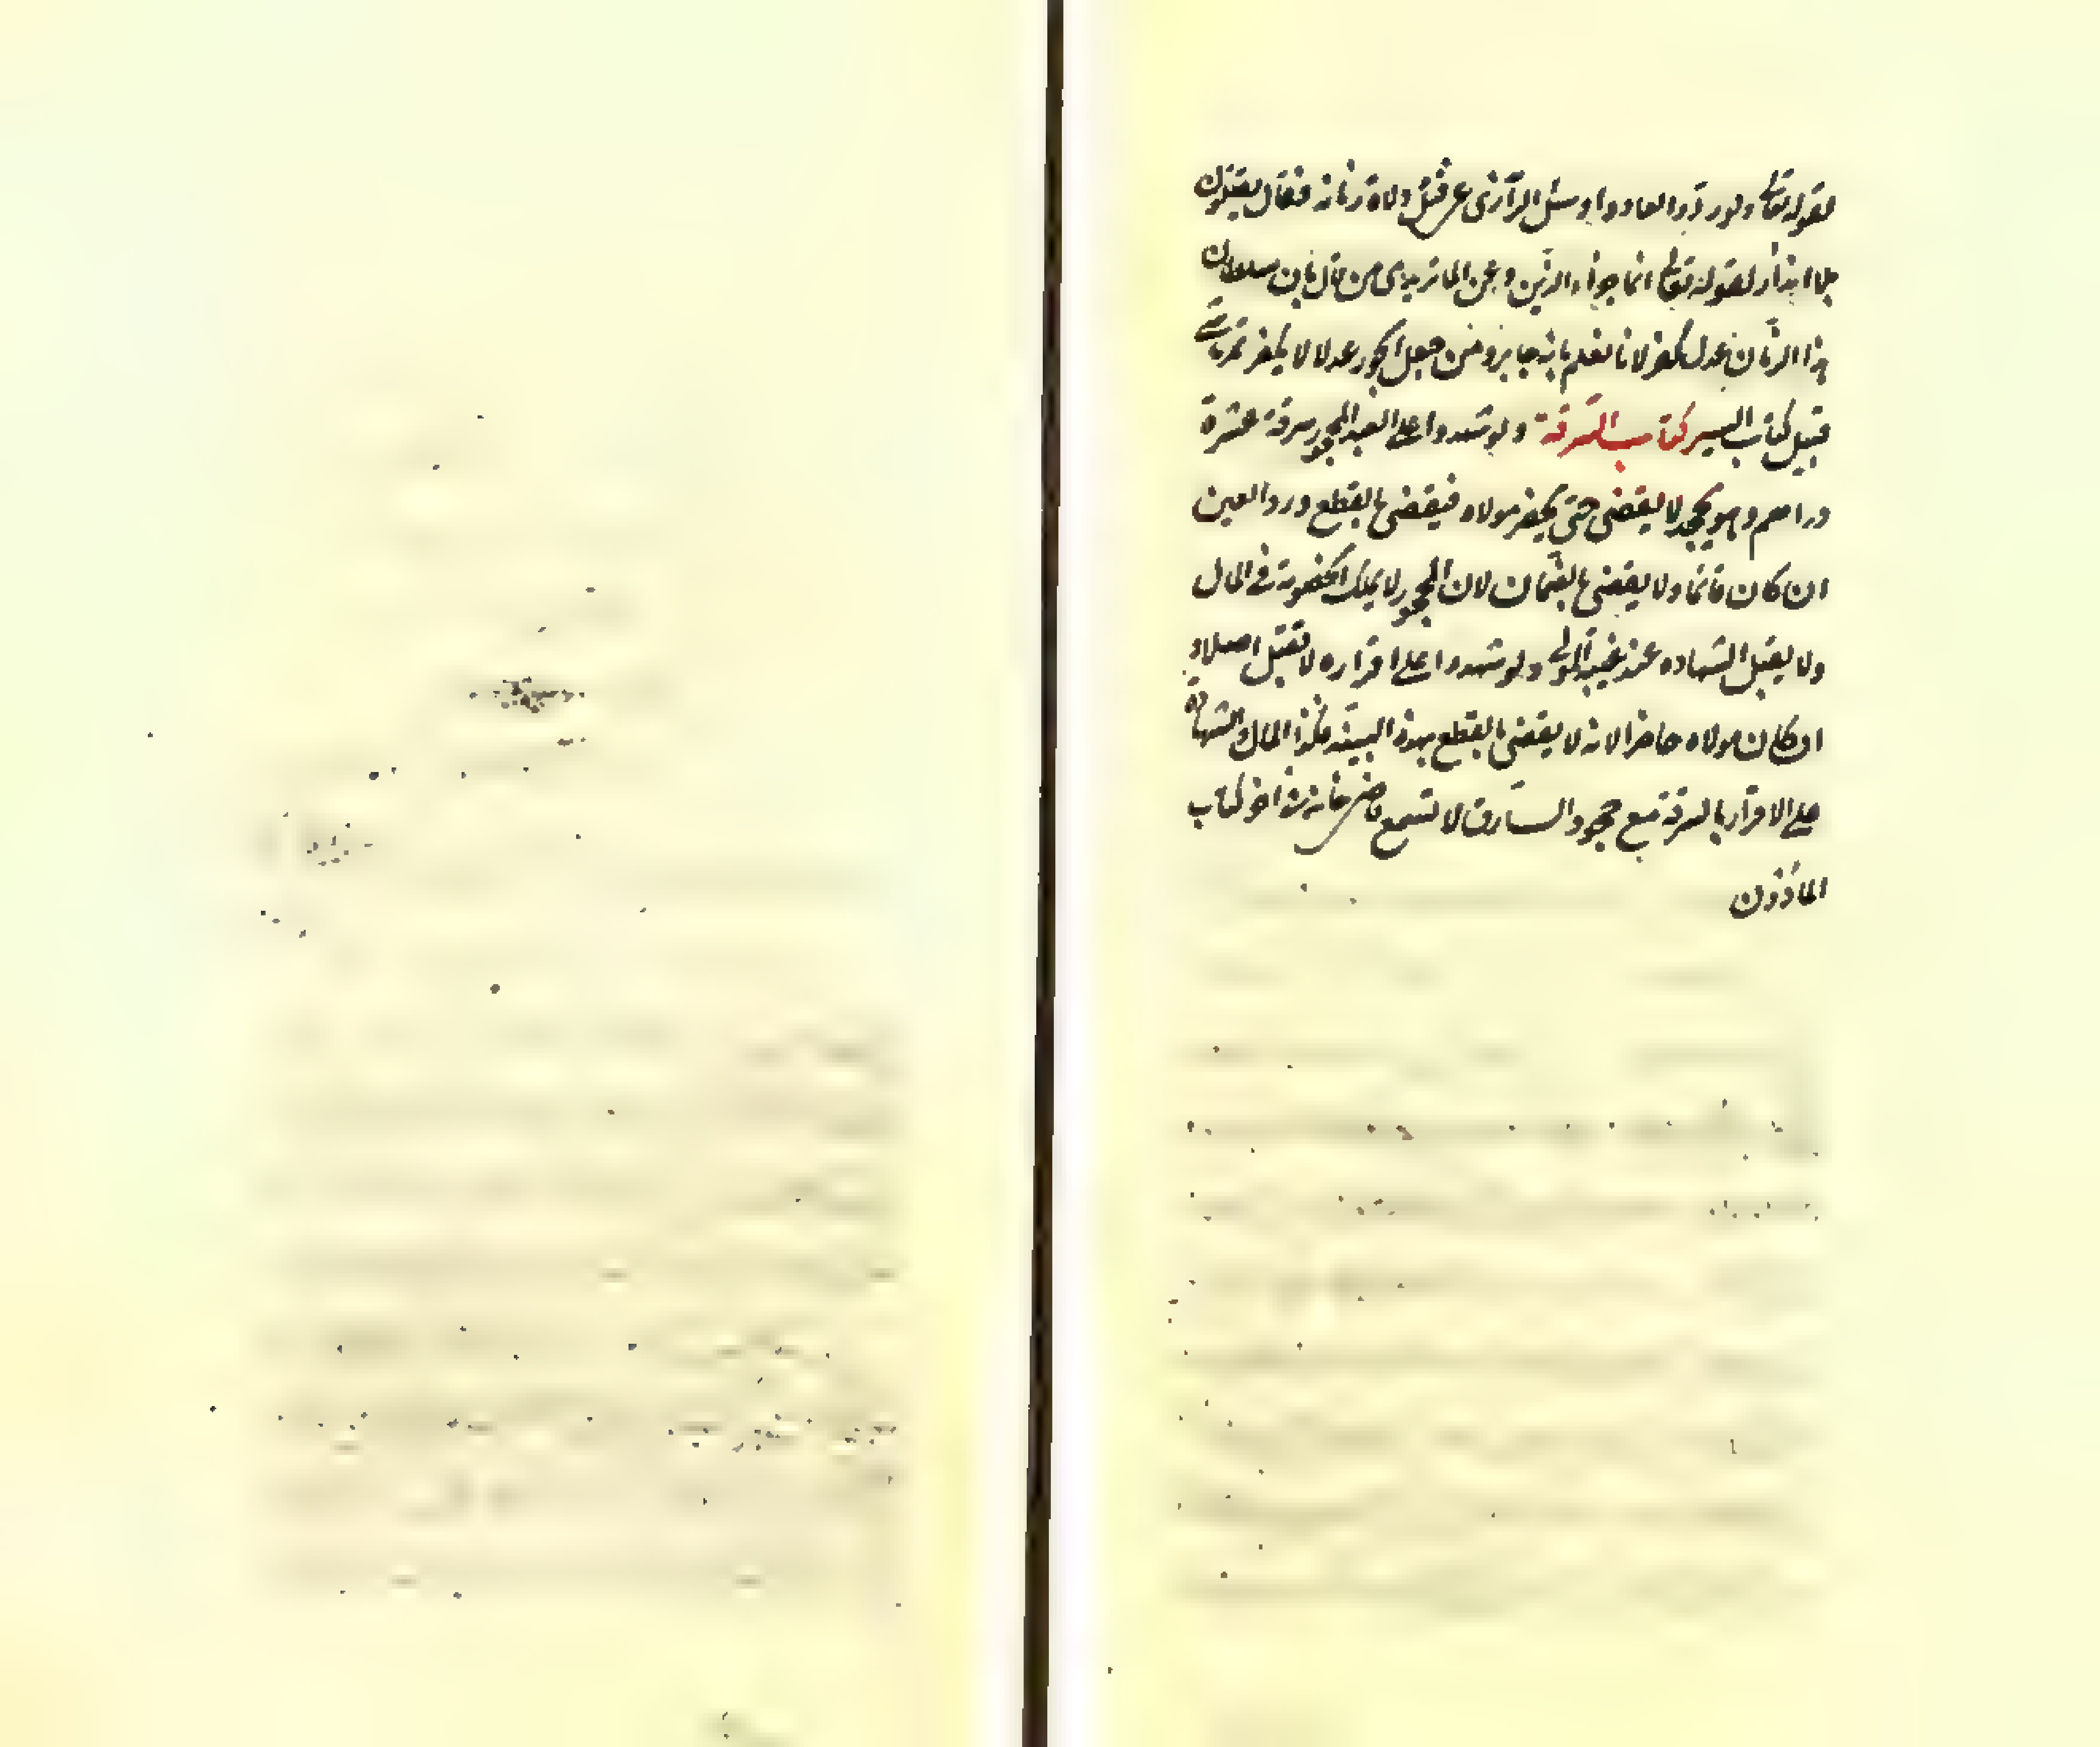 لقوله تعالى ولو ردوا لعادوا وسئل الرازى عن قتل ولاة زمانه فقال يقتلون
لقوله تعالى انما جزاء الذين وعن الماتريدى من قال بان سلطان
هذا الزمان عدل يكفر لانا نعلم بانه جاير ومن جعل الجور عدلا لا يكفر
قبيل كتاب السير كتاب السرقة ولو شهدوا على العبد المحجور سرقة عشرة
دراهم وهو يجحد لا يقضى حتى يحضر مولاه فيقضى بالقطع ورد العين
ان كان قائما ولا يقضى بالضمان لان المحجور لا يملك الخصومة فى المال
ولا يقبل الشهاده عند غيبة المولى ولو شهدوا على اقراره لا تقبل اصلا و
ان كان مولاه حاضرا لانه لا يقضى بالقطع بهذه البينة فكذا المال الشهادة
على الاقرار بالسرقة مع جحود السارق لا تسمع قاضى خان من اخر كتاب
الماذون